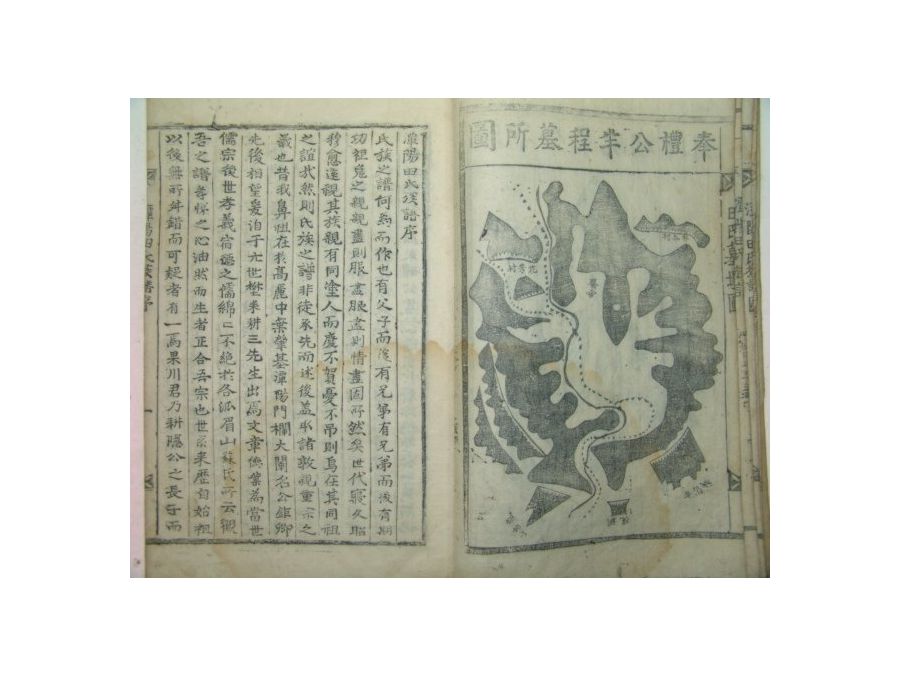 奉禮公程墓所圖
潭陽田氏族譜序
氏族之譜何爲而作也有父子而後有兄弟有兄弟而後有期
功袒免之親親盡則服盡服盡則情盡固所然矣世代寢久
移愈遠視其族親有同塗人而慶不賀憂不吊則烏在其同祖
之誼哉然則氏族之譜非徒承先而述後盖求諸敦親重宗之
義也昔我鼻祖在於高麗中葉肇基潭陽門欄大闡名公鉅卿
先後相望爰洎于六世埜耒耕三先生出焉文章德業爲當世
儒宗後世孝義宿德之儒綿〻不絶於各派眉山蘇氏所云觀
吾之譜孝悌之心油然而生者正合吾宗也世系来歷自始祖
以後無所舛錯而可疑者有一焉果川君乃耕隱公之長子而